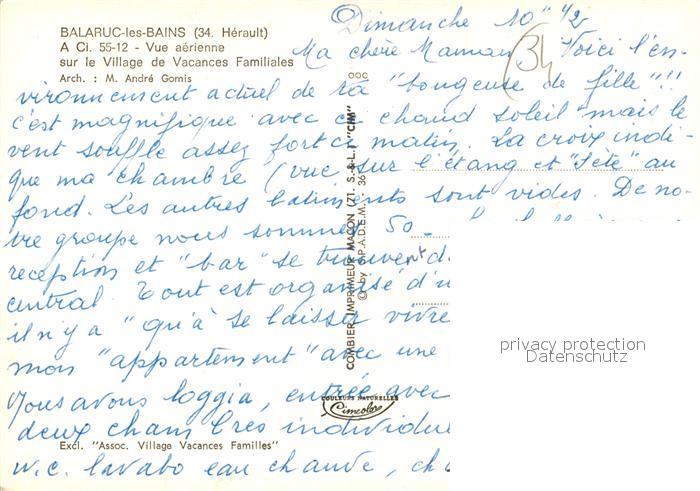 BALARUC-les-BAINS (34. Hérault)
A Ci. 55-12 - Vue aérienne
sur le Village de Vacances Familiales
Arch. : M. André Gomis
Dimanche 10" 1/2
34
Ma chère Maman, Voici l'en-
vironnement actuel de ta "bougeuse de fille"!!
c'est magnifique avec ce chaud soleil mais le
vent souffle assez fort ce matin. La croix indi-
que ma chambre (vue sur l'étang et "Sète" au
fond. Les autres batiments sont vides. De no-
tre groupe nous sommes 50 -
réception et "bar" se trouvent d
central. Tout est organisé d'u
il n'y a "qu'à se laisser vivre
mon "appartement" avec une
nous avons loggia, entrée avec
deux chambres individue
w.c. lavabo eau chaude, ch
COMBIER IMPRIMEUR MACON (71. S.-&-L.) "CIM"
© by S.P.A.D.E.M. 36
COULEURS NATURELLES
Cimcolor
Excl. "Assoc. Village Vacances Familles"
privacy protection
Datenschutz